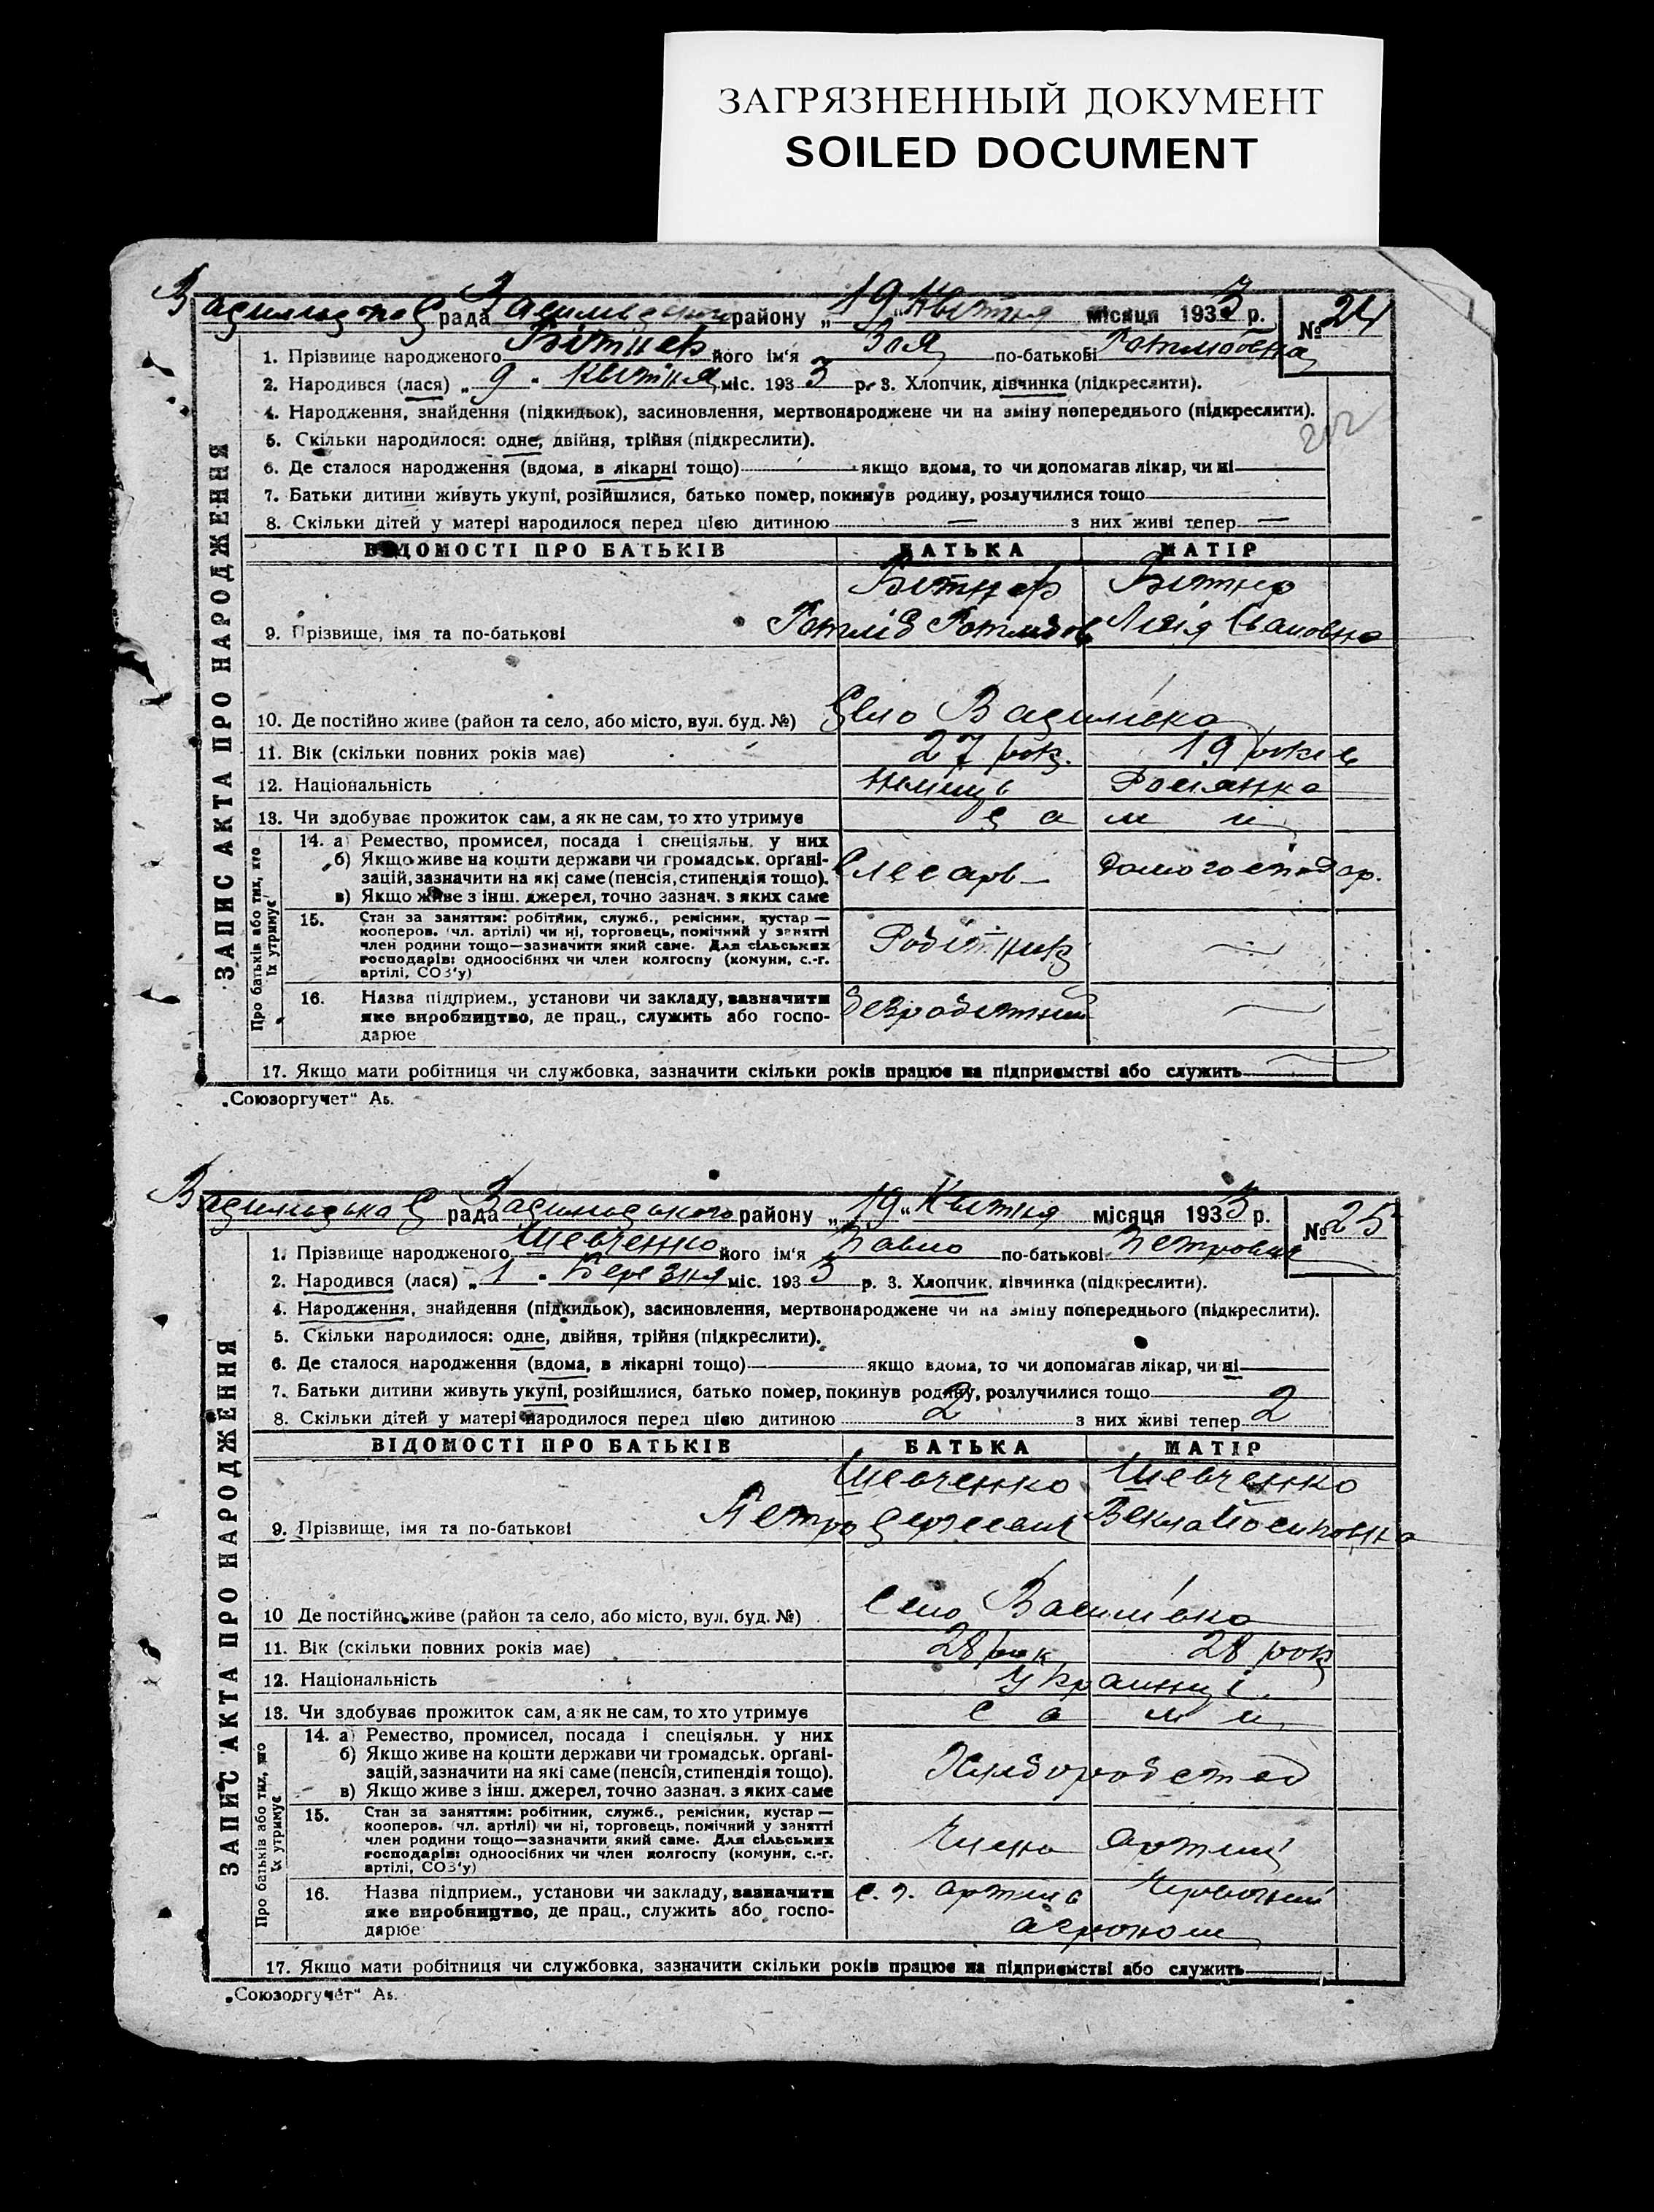 ЗАГРЯЗНЕННЫЙ ДОКУМЕНТ
SOILED DOCUMENT
рада района „19“ Квітня місяця 1933 р. № 24
1. Прізвище народженого Бітнер його ім'я Зоя по-батькові Готлібовна
2. Народився (лася) „9“ Квітня міс. 1933 р. 3. Хлопчик, дівчинка (підкреслити).
4. Народження, знайдення (підкидьок), засиновлення, мертвонароджене чи на зміну попереднього (підкреслити).
5. Скільки народилося: одне, двійня, трійня (підкреслити).
6. Де сталося народження (вдома, в лікарні тощо) якщо вдома, то чи допомагав лікар, чи ні
7. Батьки дитини живуть укупі, розійшлися, батько помер, покинув родину, розлучилися тощо
8. Скільки дітей у матері народилося перед цією дитиною — з них живі тепер —
ВІДОМОСТІ ПРО БАТЬКІВ БАТЬКА МАТІР
Бітнер Бітнер
9. Прізвище, імя та по-батькові Готліб Готлібов Лідія Івановна
10. Де постійно живе (район та село, або місто, вул. буд. №) Село Василівка
11. Вік (скільки повних років має) 27 рок. 19 років
12. Національність Німець Росіянка
13. Чи здобуває прожиток сам, а як не сам, то хто утримує сами
14. а) Ремество, промисел, посада і спеціяльн. у них
б) Якщо живе на кошти держави чи громадськ. органі-
зацій, зазначити на які саме (пенсія, стипендія тощо). Слесарь Домогосподар.
в) Якщо живе з інш. джерел, точно зазнач. з яких саме
15. Стан за заняттям: робітник, служб., ремісник, кустар —
кооперов. (чл. артілі) чи ні, торговець, помічний у занятті
член родини тощо—зазначити який саме. Для сільських Робітник —
господарів: одноосібних чи член колгоспу (комуни, с.-г.
артілі, СОЗ'у)
16. Назва підприєм., установи чи закладу, зазначити безробітний —
яке виробництво, де прац., служить або госпо-
дарює
17. Якщо мати робітниця чи службовка, зазначити скільки років працює на підприємстві або служить
ЗАПИС АКТА ПРО НАРОДЖЕННЯ
Про батьків або тих, хто їх утримує
„Союзоргучет“ Аб.
рада Василівського району „19“ Квітня місяця 1933 р. № 25
1. Прізвище народженого Шевченко його ім'я Павло по-батькові Петрович
2. Народився (лася) „1“ Березня міс. 1933 р. 3. Хлопчик, дівчинка (підкреслити).
4. Народження, знайдення (підкидьок), засиновлення, мертвонароджене чи на зміну попереднього (підкреслити).
5. Скільки народилося: одне, двійня, трійня (підкреслити).
6. Де сталося народження (вдома, в лікарні тощо) якщо вдома, то чи допомагав лікар, чи ні
7. Батьки дитини живуть укупі, розійшлися, батько помер, покинув родину, розлучилися тощо
8. Скільки дітей у матері народилося перед цією дитиною 2 з них живі тепер 2
ВІДОМОСТІ ПРО БАТЬКІВ БАТЬКА МАТІР
Шевченко Шевченко
9. Прізвище, імя та по-батькові Петро Векла Йосиповна
10 Де постійно живе (район та село, або місто, вул. буд. №) Село Василівка
11. Вік (скільки повних років має) 28 рок 28 рок
12. Національність Українці
13. Чи здобуває прожиток сам, а як не сам, то хто утримує сами
14. а) Ремество, промисел, посада і спеціяльн. у них
б) Якщо живе на кошти держави чи громадськ. органі- Хліборобство
зацій, зазначити на які саме (пенсія, стипендія тощо).
в) Якщо живе з інш. джерел, точно зазнач. з яких саме
15. Стан за заняттям: робітник, служб., ремісник, кустар —
кооперов. (чл. артілі) чи ні, торговець, помічний у занятті
член родини тощо—зазначити який саме. Для сільських Члени артілі
господарів: одноосібних чи член колгоспу (комуни, с.-г.
артілі, СОЗ'у)
16. Назва підприєм., установи чи закладу, зазначити с. г. артиль Червоний
яке виробництво, де прац., служить або госпо- агроном
дарює
17. Якщо мати робітниця чи службовка, зазначити скільки років працює на підприємстві або служить
ЗАПИС АКТА ПРО НАРОДЖЕННЯ
Про батьків або тих, що їх утримує
„Союзоргучет“ Аб.